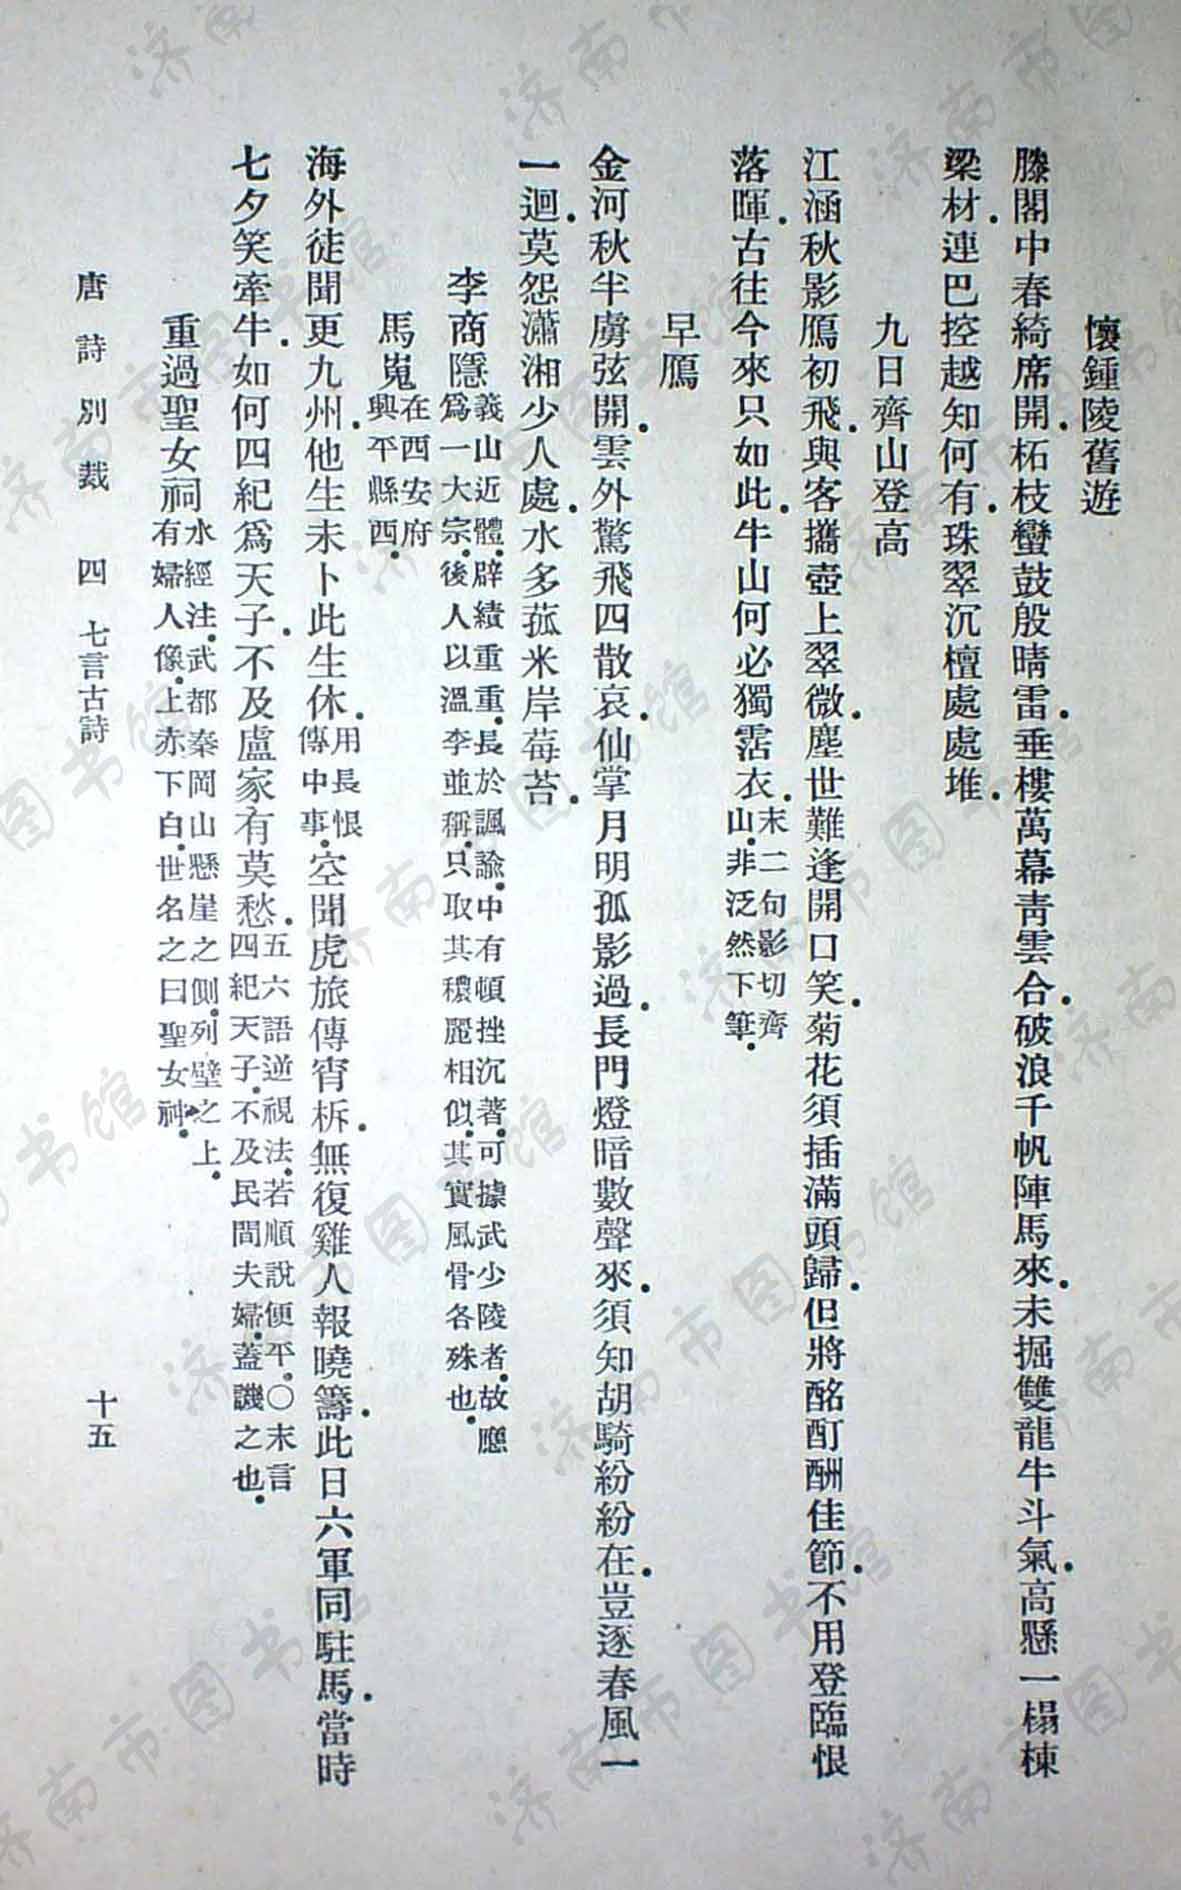 懷鍾陵舊遊
滕閣中春綺席開．柘枝蠻鼓殷晴雷．垂樓萬幕青雲合．破浪千帆陣馬來．未掘雙龍牛斗氣．高懸一榻棟
梁材．連巴控越知何有．珠翠沉檀處處堆．
九日齊山登高
江涵秋影鴈初飛．與客攜壺上翠微．塵世難逢開口笑．菊花須插滿頭歸．但將酩酊酬佳節．不用登臨恨
落暉．古往今來只如此．牛山何必獨霑衣．末二句影切齊山．非泛然下筆．
早鴈
金河秋半虜弦開．雲外驚飛四散哀．仙掌月明孤影過．長門燈暗數聲來．須知胡騎紛紛在．豈逐春風一
一迴．莫怨瀟湘少人處．水多菰米岸莓苔．
李商隱義山近體．辟績重重．長於諷諭．中有頓挫沉著．可據武少陵者．故應爲一大宗．後人以溫李並稱．只取其穠麗相似．其實風骨各殊也．
馬嵬在西安府興平縣西．
海外徒聞更九州．他生未卜此生休．用長恨傳中事．空聞虎旅傳宵柝．無復雞人報曉籌．此日六軍同駐馬．當時
七夕笑牽牛．如何四紀爲天子．不及盧家有莫愁．五六語逆視法．若順說便平．〇末言四紀天子．不及民間夫婦．蓋譏之也．
重過聖女祠水經注．武都秦岡山懸崖之側．列壁之上．有婦人像．上赤下白．世名之曰聖女神．
唐詩別裁 四 七言古詩 十五
济南市图书馆